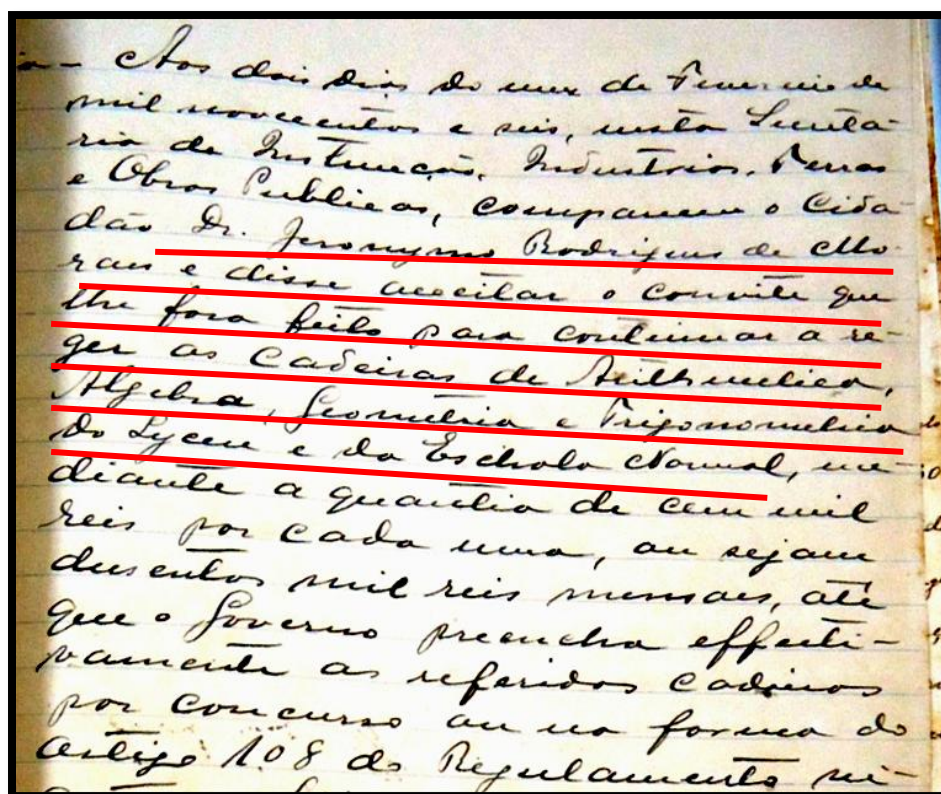 Aos dois dias do mez de Fevereiro de
mil novecentos e seis, nesta Secreta-
ria de Instrucção, Industrias, Terras
e Obras Publicas, compareceu o Cida-
dão Dr. Jeronymo Rodrigues de Mo-
raes e disse acceitar o convite que
lhe fora feito para continuar a re-
ger as cadeiras de Arithmetica,
Algebra, Geometria e Trigonometria
do Lyceu e da Eschola Normal, me-
diante a quantia de cem mil
reis por cada uma, ou sejam
dusentos mil reis mensaes, até
que o Governo preencha effecti-
vamente as referidas cadeiras
por concurso ou na forma do
artigo 108 do Regulamento vi-